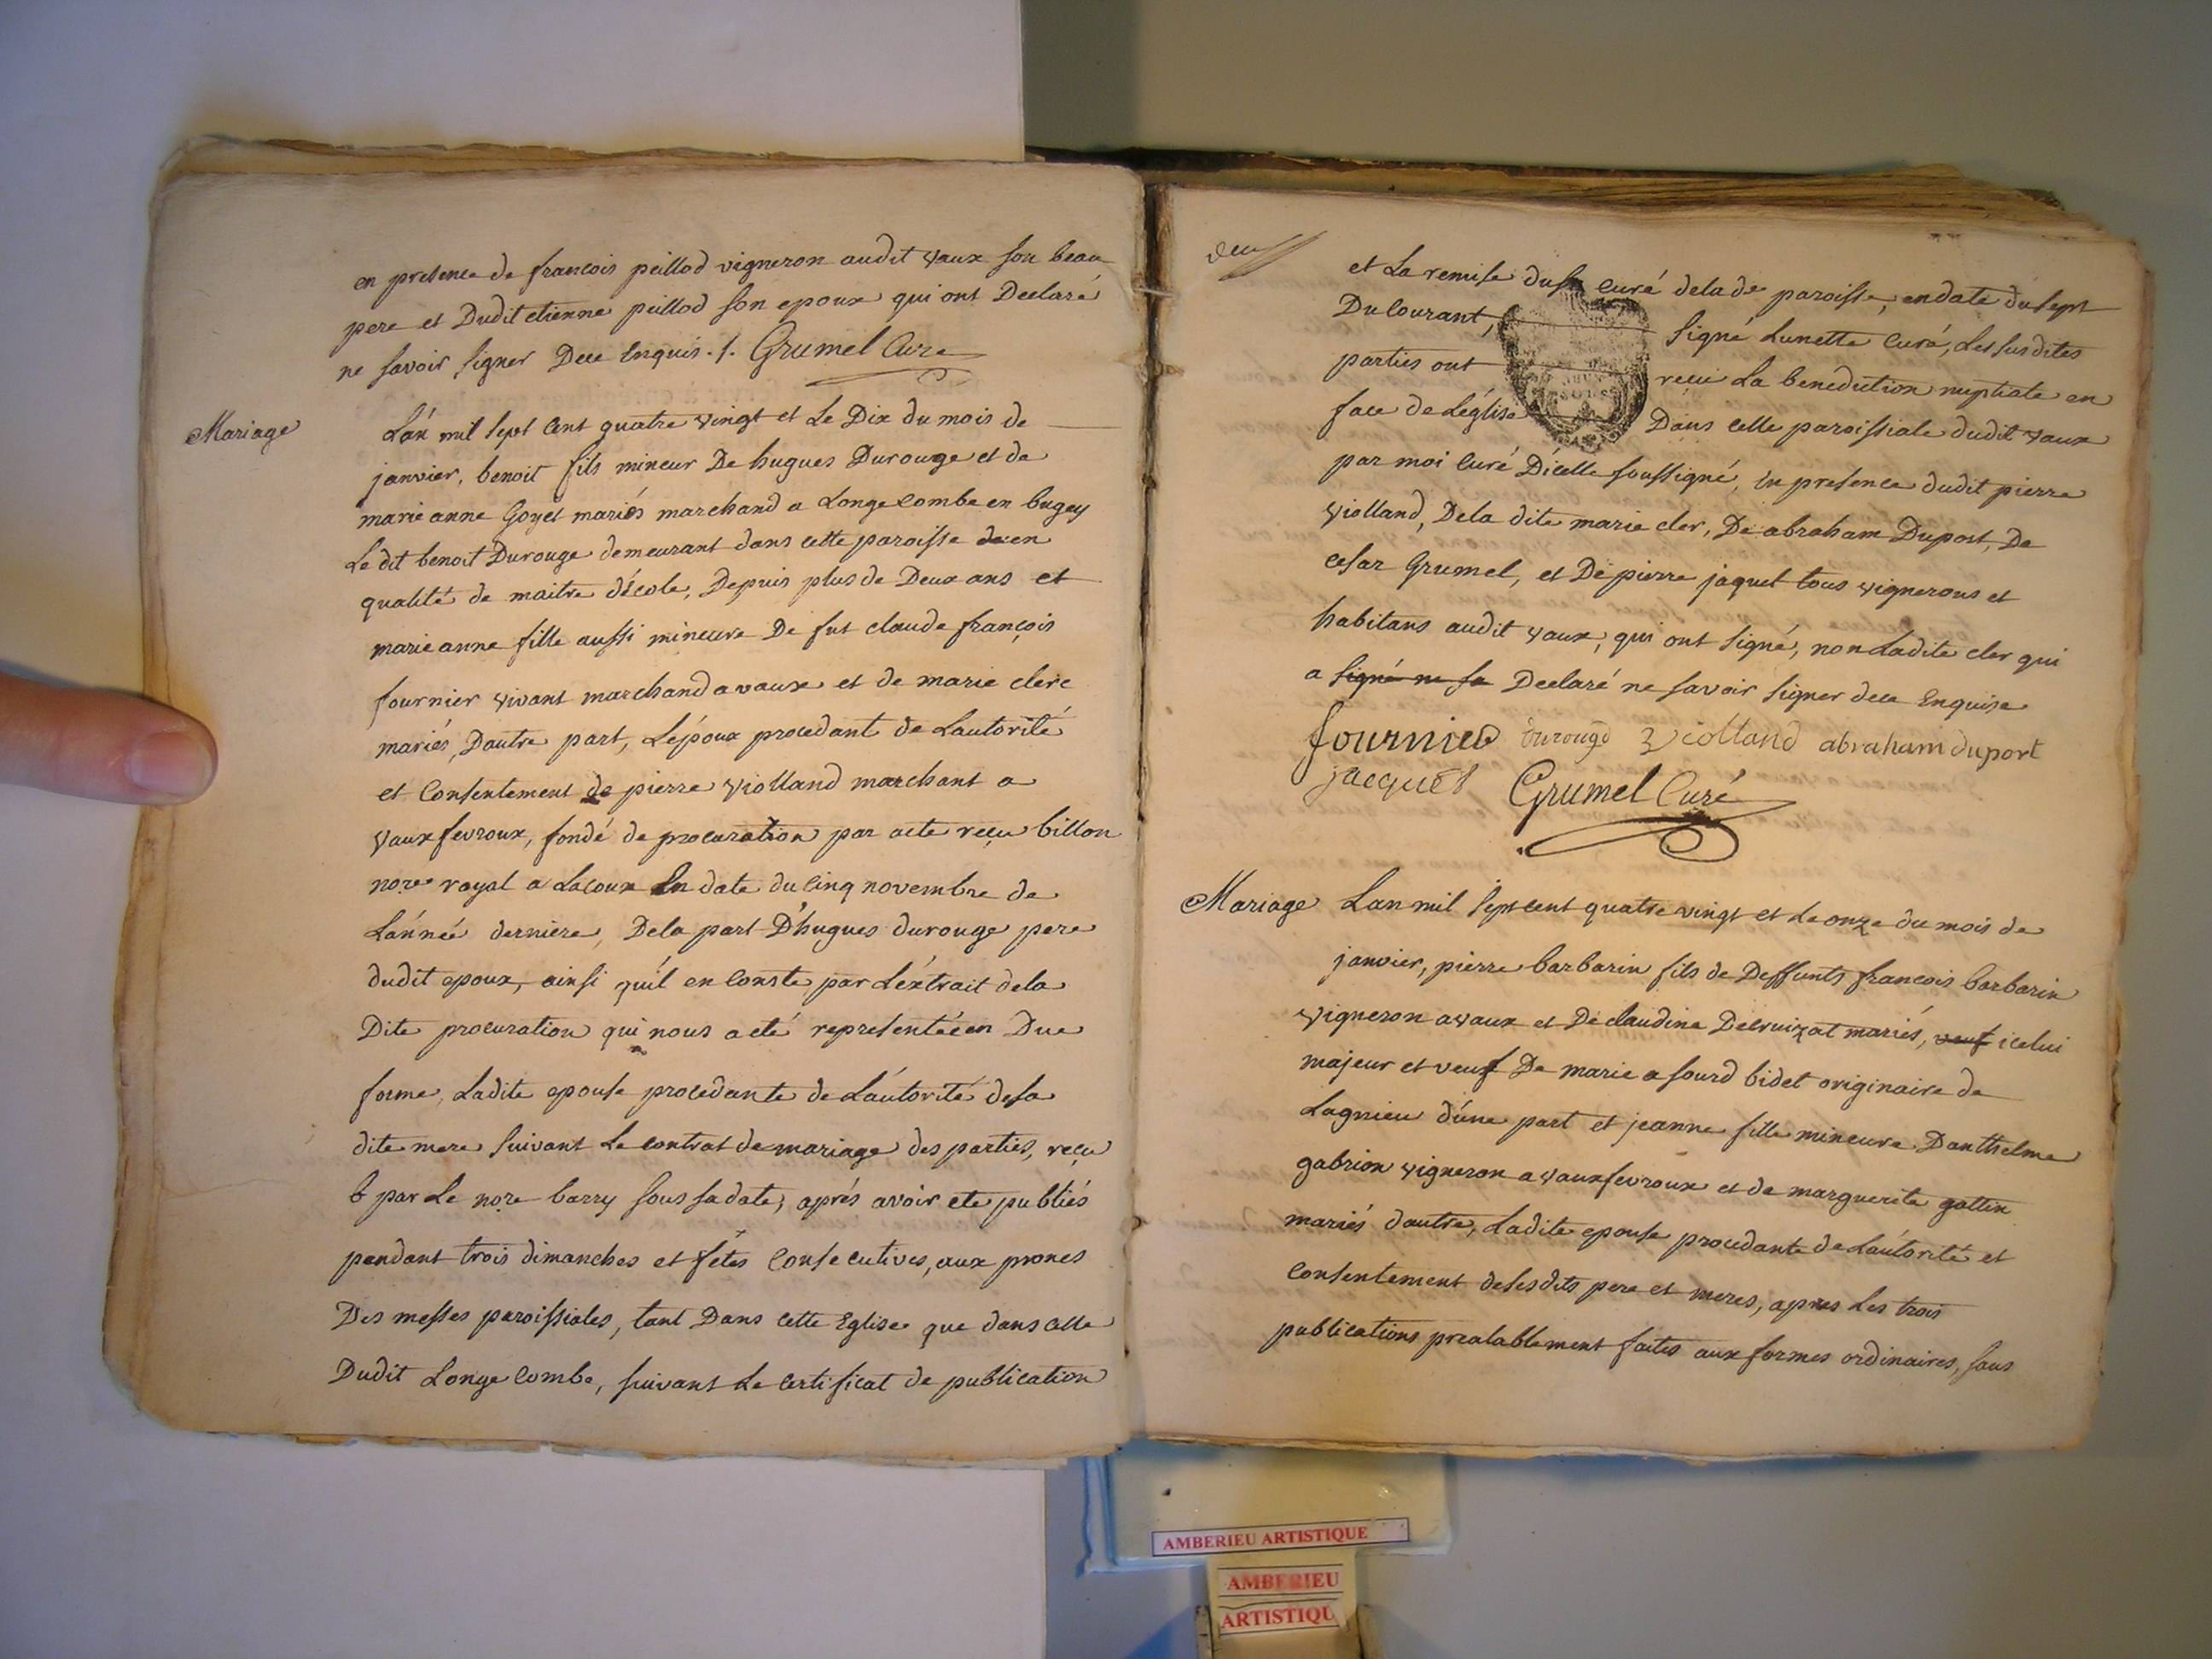 en presence de francois peillod vigneron audit vaux son beau
pere et Dudit etienne peillod son epoux qui ont Declaré
ne savoir signer Dece Enquis ./. Grumel Curé
Mariage
L'an mil sept cent quatre vingt et Le Dix du mois de
janvier, benoit fils mineur De hugues Durouge et de
marie anne Goyet mariés marchand a Longecombe en bugey
Le dit benoit Durouge demeurant dans cette paroisse de en
qualité de maitre d'école, Depuis plus de Deux ans et
marie anne fille aussi mineure De fut claude françois
fournier vivant marchand a vaux et de marie clerc
mariés, Dautre part, L'époux procedant de Lautorité
et Consentement de pierre violland marchant a
vaux fevroux, fondé de procuration par acte reçu billon
nore royal a Lacoux En date du Cinq novembre de
L'année derniere, Dela part D'hugues durouge pere
dudit epoux, ainsi qu'il en Conste par L'extrait dela
Dite procuration qui nous a eté representée en Due
forme, Ladite epouse procedante de L'autorité desa
dite mere suivant Le contrat de mariage des parties, reçu
b par Le nore barry sous sa date, aprés avoir ete publiés
pendant trois dimanches et fétes Consecutives, aux prones
Des messes paroissiales, tant Dans cette Eglise que dans celle
Dudit Longe Combe, suivant Le Certificat de publication
deux
et La remise du sr curé delade paroisse, en date du sept
Du Courant, signé Lunette Curé, Les susdites
parties ont reçu La benediction nuptiale en
face de L'église Dans celle paroissiale dudit vaux
par moi Curé D'icelle soussigné, En presence dudit pierre
violland, Dela dite marie cler, De abraham Duport, De
cesar Grumel, et De pierre jaquet tous vignerons et
habitans audit vaux, qui ont signé, non Ladite cler qui
a signé ne sa Declaré ne savoir signer dece Enquise
fournier durouge Violland abraham duport
jacquet Grumel Curé
Mariage
Lan mil sept cent quatre vingt et Le onze du mois de
janvier, pierre barbarin fils de Deffunts francois barbarin
vigneron a vaux et De claudine Decruizat mariés, veuf icelui
majeur et veuf De marie a sourd bidet originaire de
Lagnieu d'une part et jeanne fille mineure Danthelme
gabrion vigneron a vauxfevroux et de marguerite gottin
mariés dautre, Ladite epouse procedante de L'autorité et
Consentement desesdits pere et meres, apres Les trois
publications prealablement faites aux formes ordinaires, sans
AMBERIEU ARTISTIQUE
AMBERIEU
ARTISTIQU